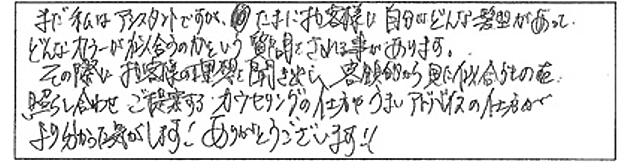 まだ私はアシスタントですが、たまにお客様に自分はどんな髪型があって
どんなカラーが似合うのかという質問をされる事があります。
その際にお客様の理想を聞き出し、客観的から見た似合うものを
照らし合わせご提案するカウセリングの仕方やうまいアドバイスの仕方が
より分かった気がします！ありがとうございます!!